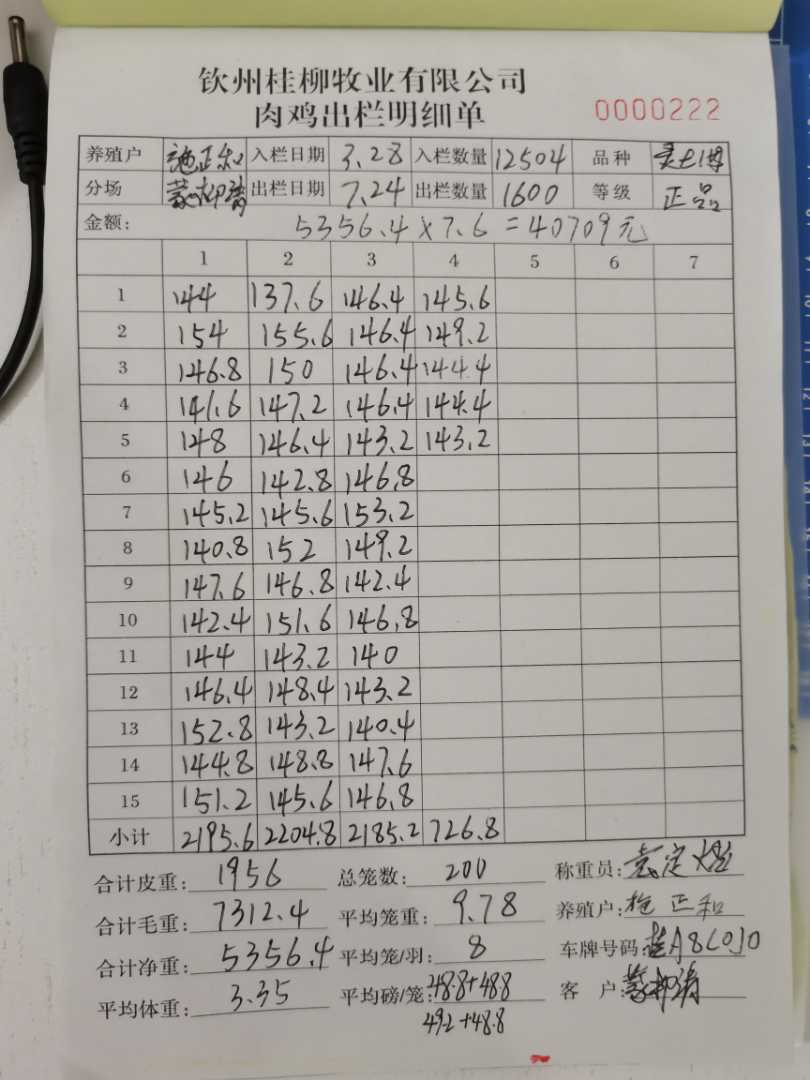 钦州桂柳牧业有限公司
肉鸡出栏明细单 0000222
养殖户 施正和 入栏日期 3.28 入栏数量 12504 品种
分场 出栏日期 7.24 出栏数量 1600 等级 正品
金额: 5356.4×7.6=40709元
1 2 3 4 5 6 7
1 144 137.6 146.4 145.6
2 154 155.6 146.4 149.2
3 146.8 150 146.4 144.4
4 141.6 147.2 146.4 144.4
5 148 146.4 143.2 143.2
6 146 142.8 146.8
7 145.2 145.6 153.2
8 140.8 152 149.2
9 147.6 146.8 142.4
10 142.4 151.6 146.8
11 144 143.2 140
12 146.4 148.4 143.2
13 152.8 143.2 140.4
14 144.8 148.8 147.6
15 151.2 145.6 146.8
小计 2195.6 2204.8 2185.2 726.8
合计皮重: 1956 总笼数: 200 称重员:
合计毛重: 7312.4 平均笼重: 9.78 养殖户: 施正和
合计净重: 5356.4 平均笼/羽: 8 车牌号码:
平均体重: 3.35 平均磅/笼: 48.8+48.8 客 户:
49.2+48.8